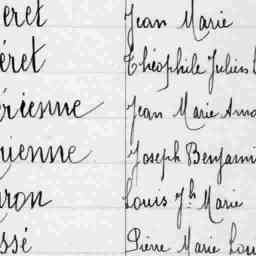 eret Jean Marie
éret Théophile Julien
érienne Jean Marie Ama
rienne Joseph Benjami
uron Louis Jh Marie
ssé Pierre Marie Loui